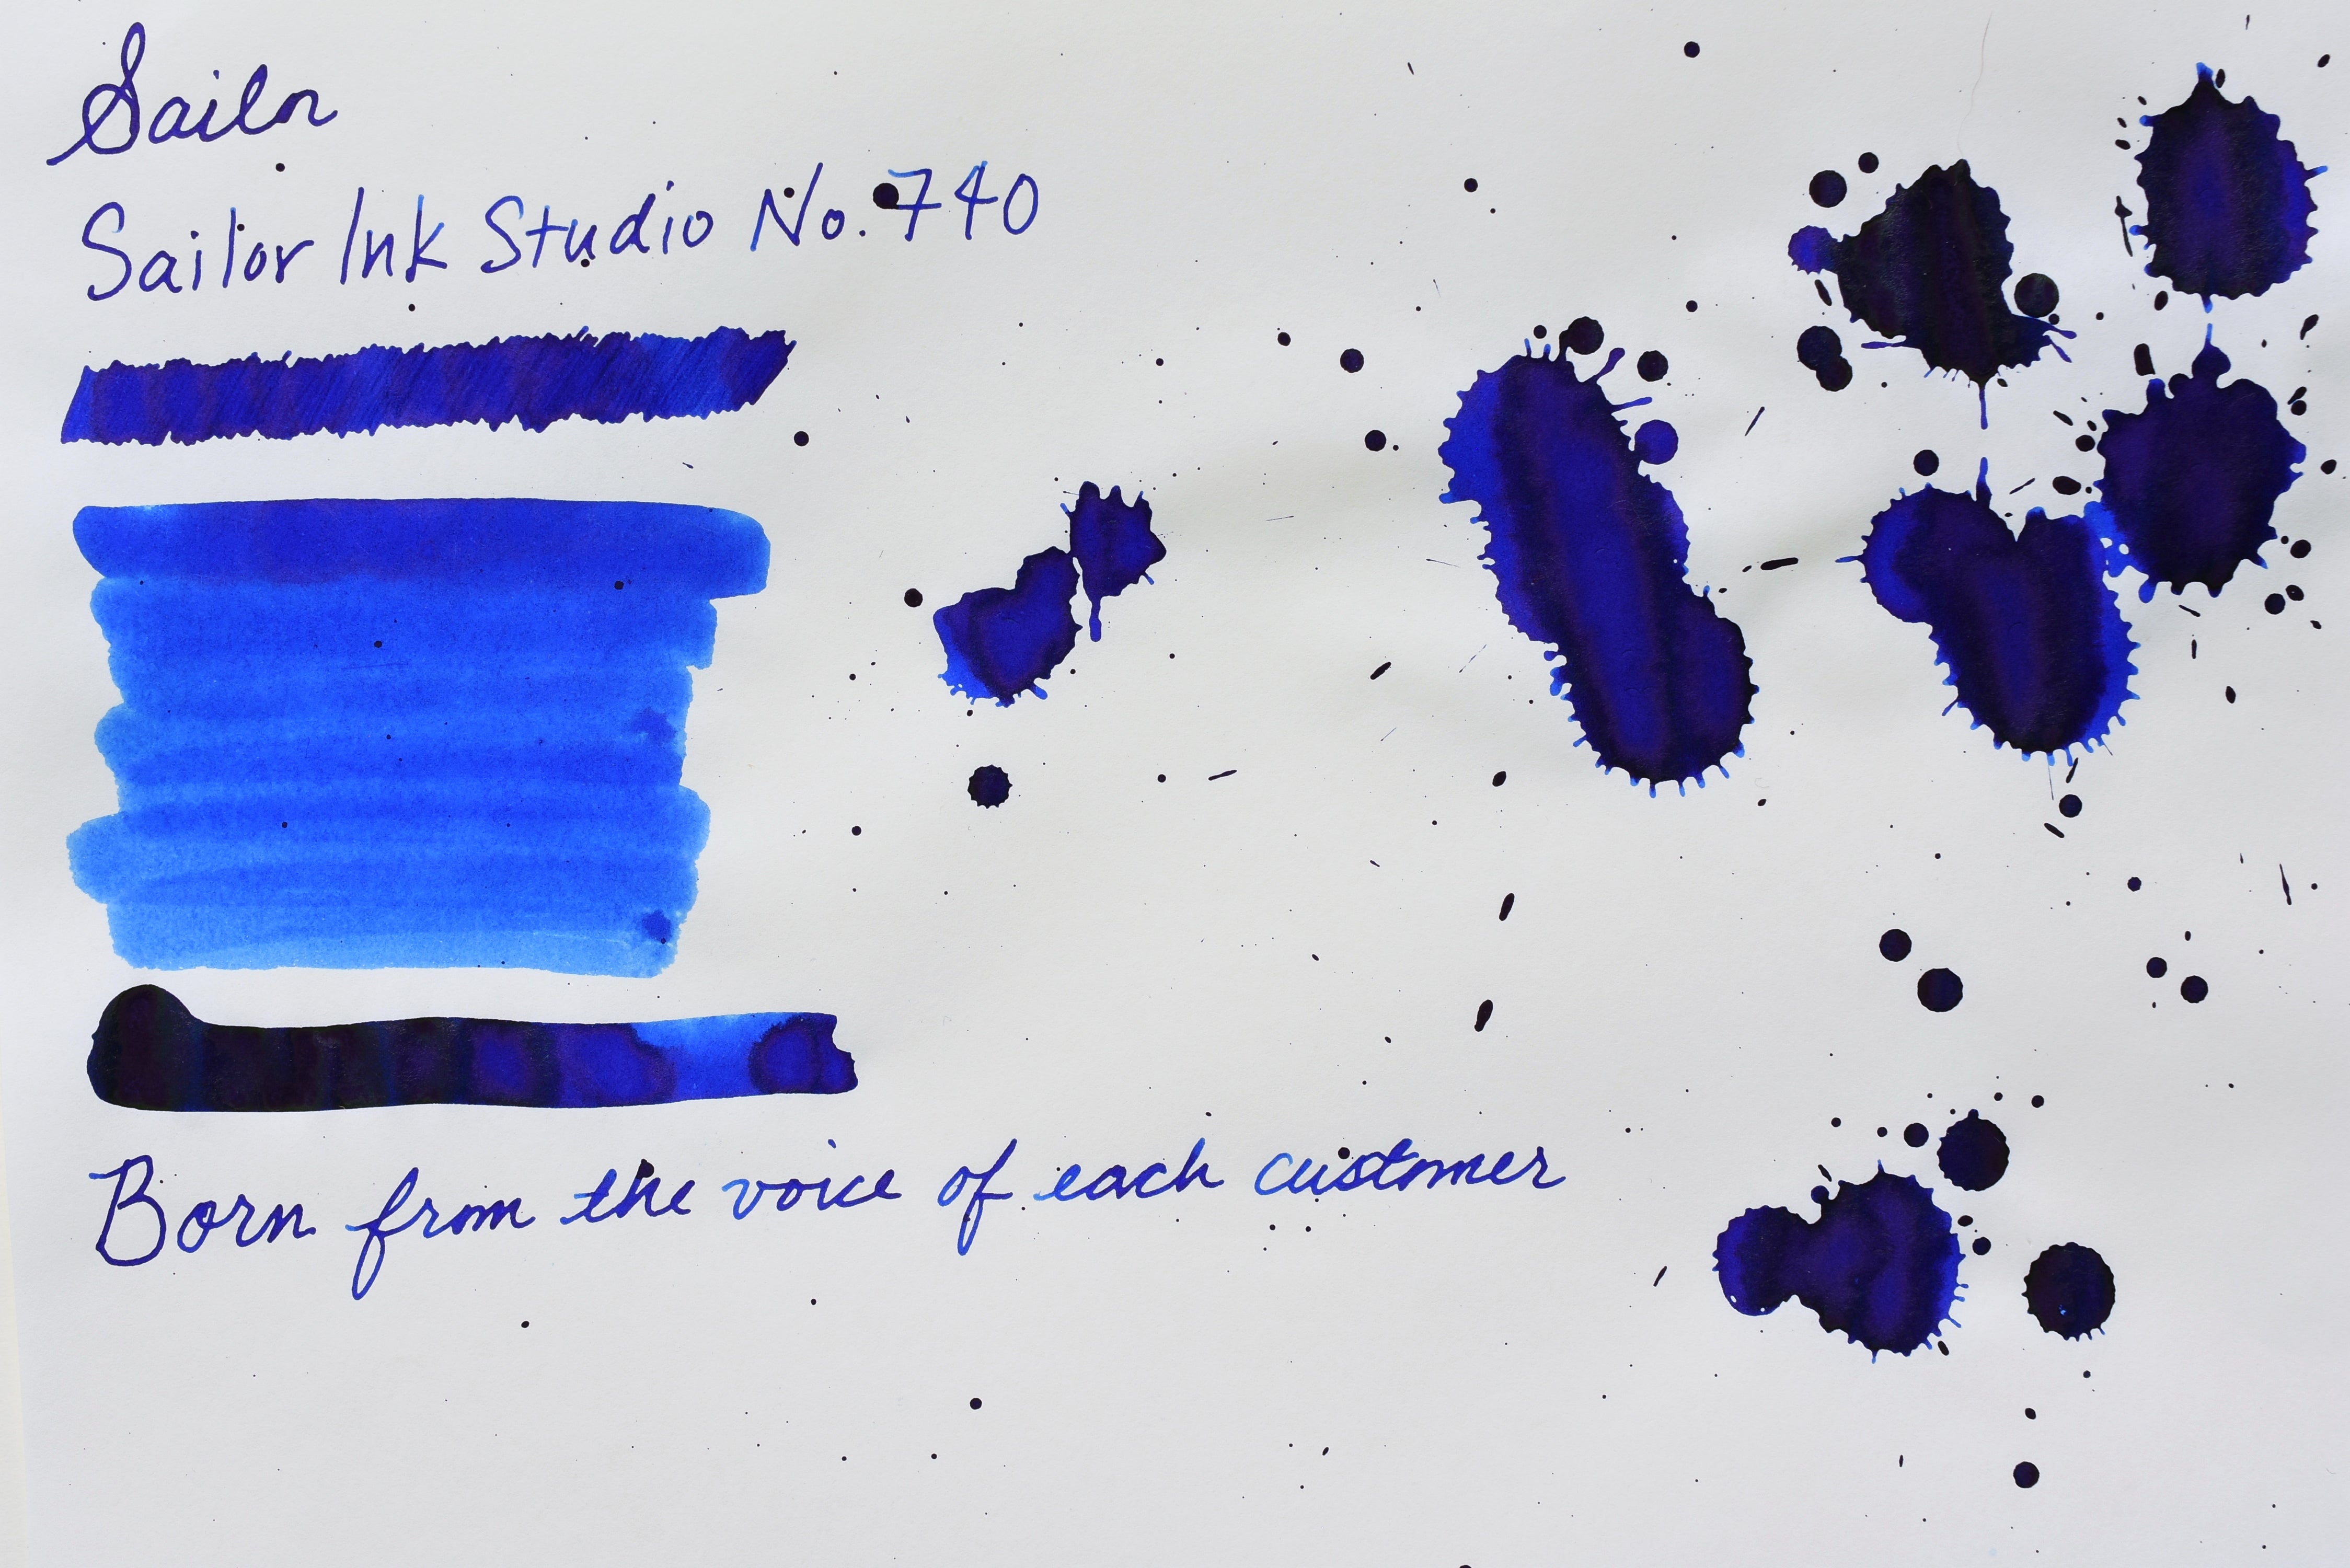 Sailor
Sailor Ink Studio No. 740
Born from the voice of each customer